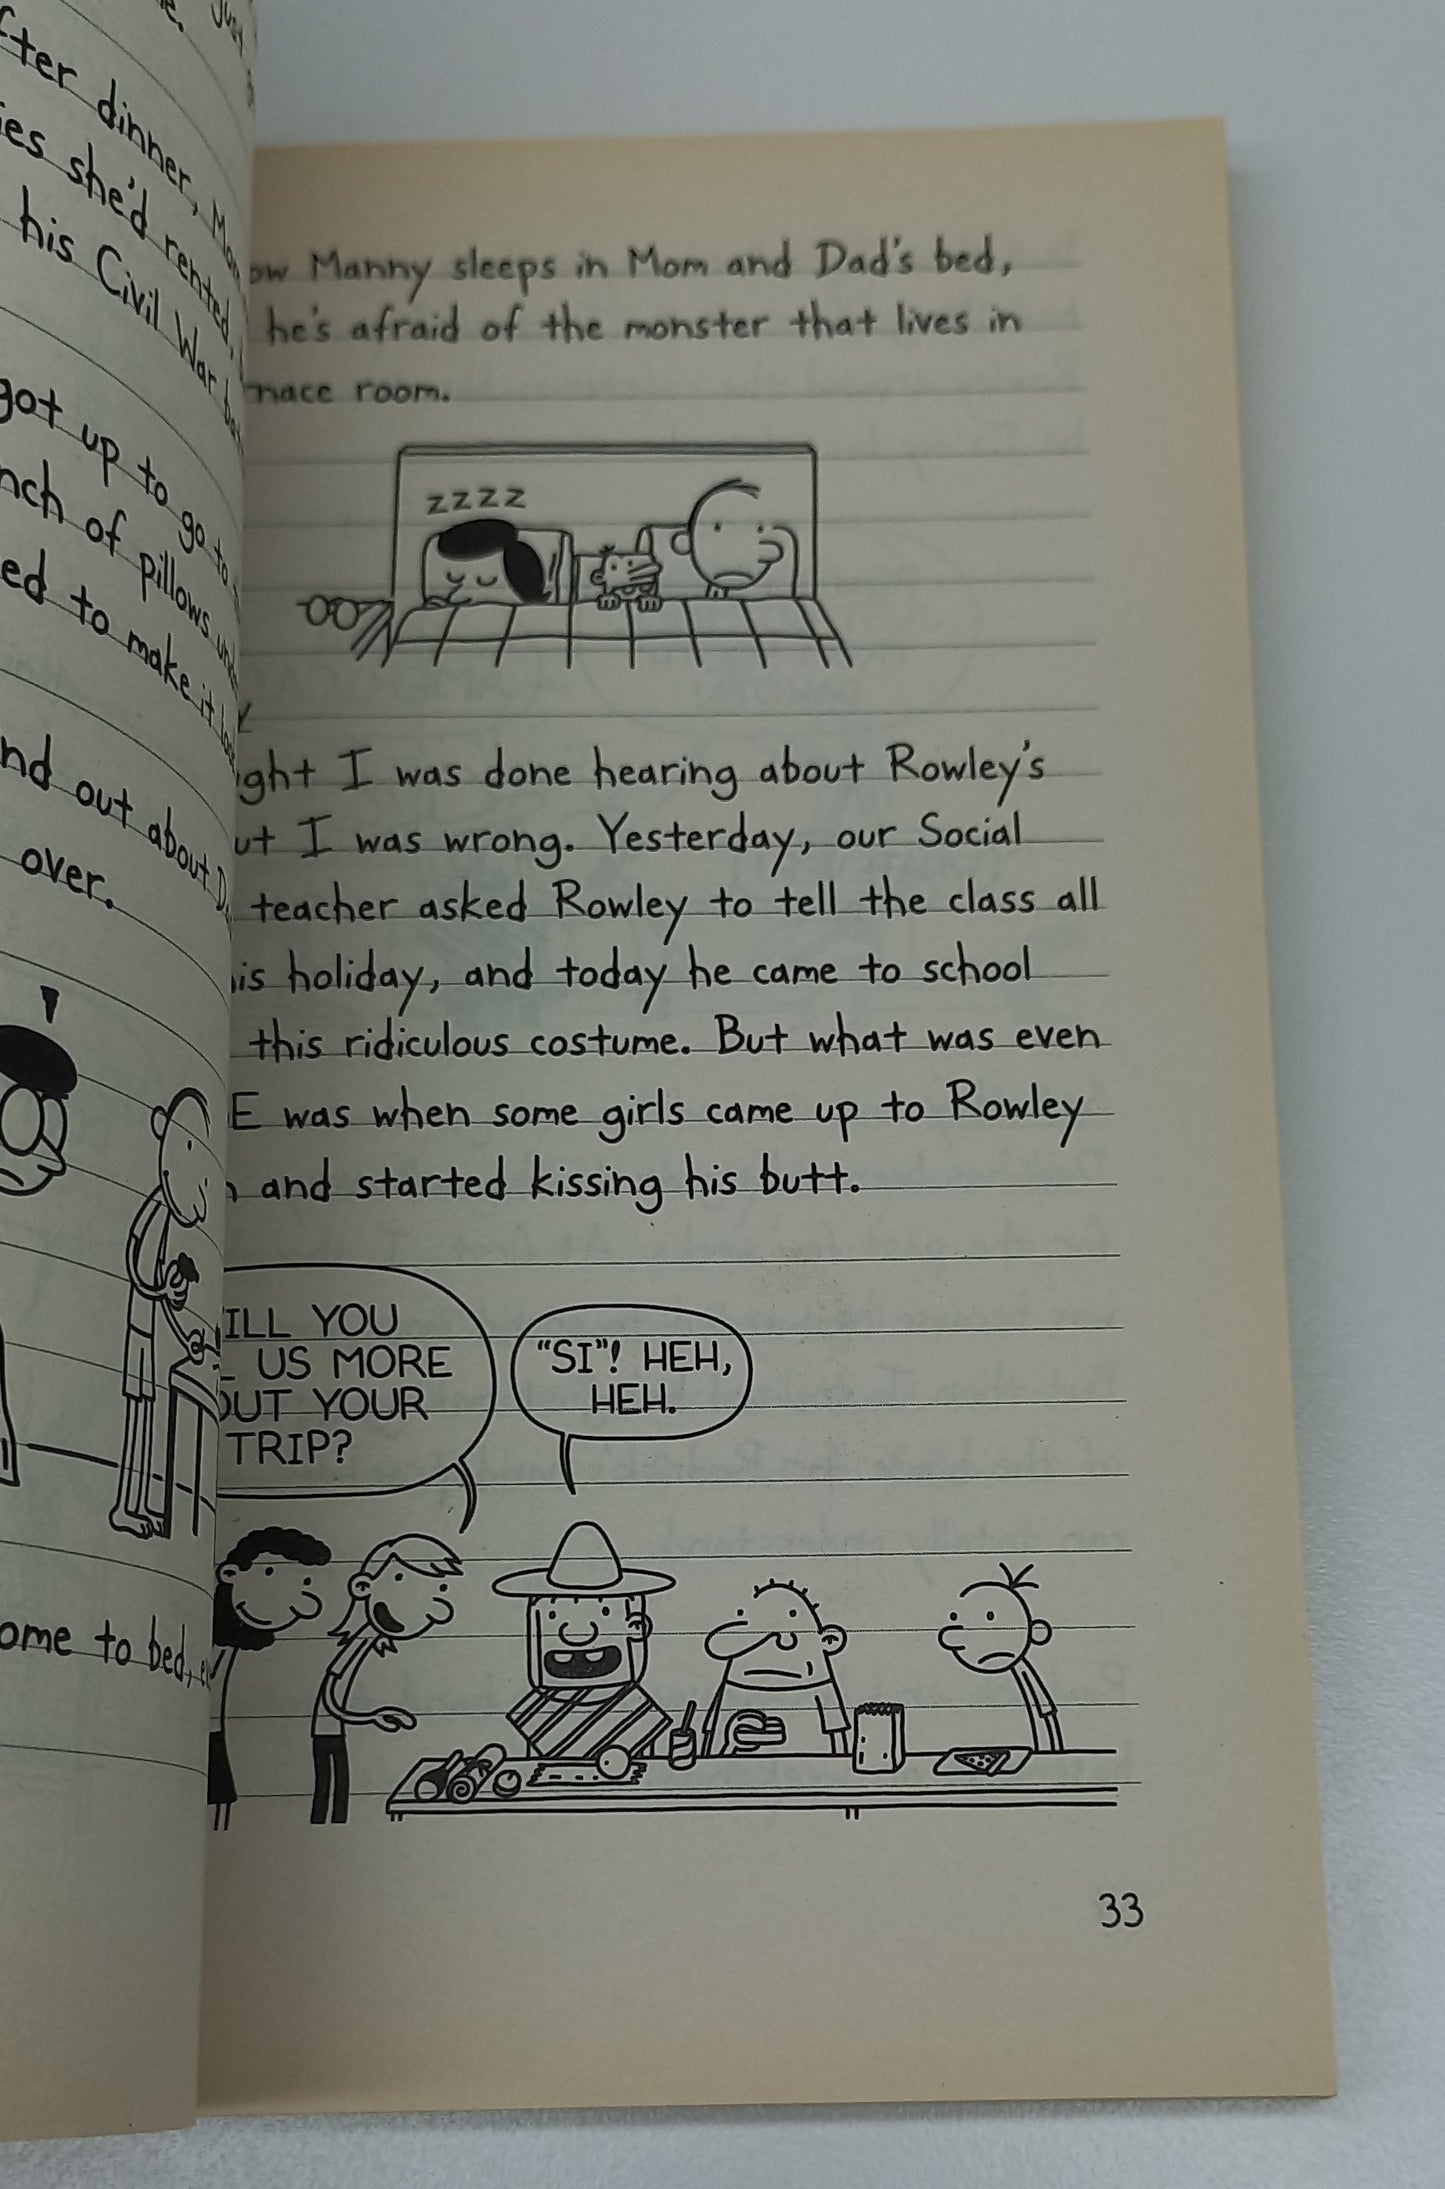 fter dinner,
she'd rented,
his Civil War
got up to go to
of pillows
to make it
out about
over.
to bed,
Manny sleeps in Mom and Dad's bed,
he's afraid of the monster that lives in
room.
ZZZZ
I was done hearing about Rowley's
I was wrong. Yesterday, our Social
teacher asked Rowley to tell the class all
holiday, and today he came to school
this ridiculous costume. But what was even
E was when some girls came up to Rowley
and started kissing his butt.
ILL YOU
US MORE
OUT YOUR
TRIP?
"SI"! HEH,
HEH.
33